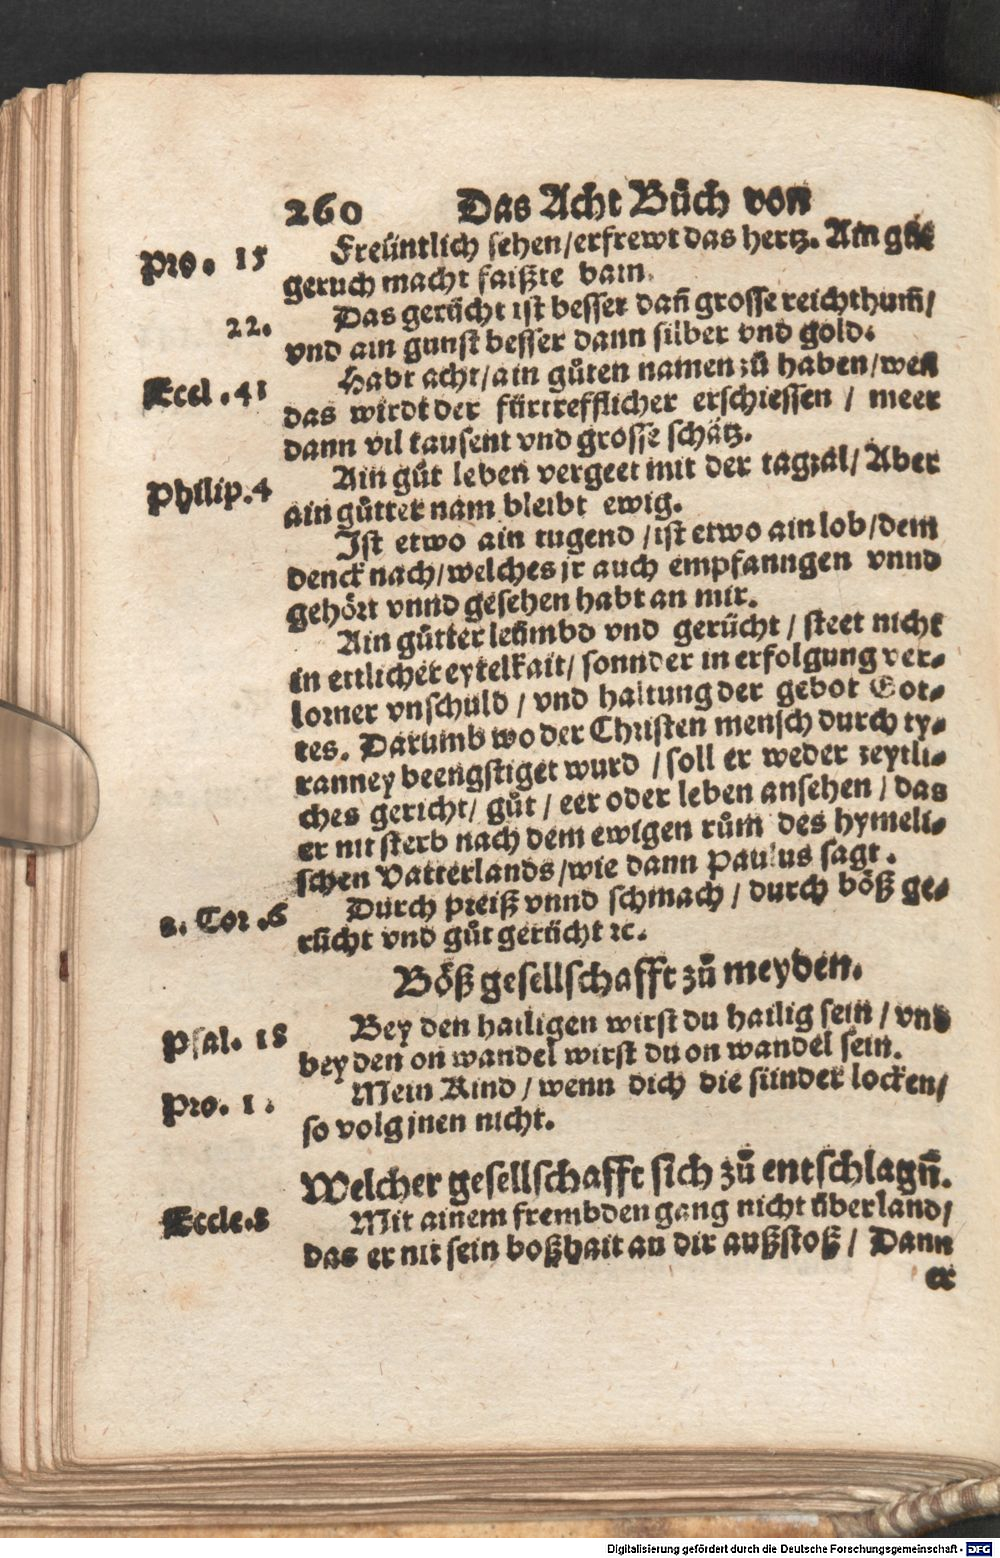 260 Das Acht Bůch von
Pro. 15 Freüntlich sehen/erfrewt das hertz. Ain gůt
geruch macht faißte bain.
22. Das gerücht ist besser dañ grosse reichthum̃/
vnd ain gunst besser dann silber vnd gold.
Eccl. 41 Habt acht/ain gůten namen zů haben/wen
das wirdt der fürtrefflicher erschiessen / meer
dann vil tausent vnd grosse schätz.
Ain gůt leben vergeet mit der tagzal/ Aber
Philip. 4 ain gůtter nam bleibt ewig.
Ist etwo ain tugend /ist etwo ain lob/dem
denck nach/welches jr auch empfanngen vnnd
gehört vnnd gesehen habt an mir.
Ain gůtter leümbd vnd gerücht / steet nicht
in ettlicher eytelkait/ sonnder in erfolgung ver⸗
lorner vnschuld / vnd haltung der gebot Got⸗
tes. Darumb wo der Christen mensch durch ty⸗
ranney beengstiget wurd / soll er weder zeytli⸗
ches gericht/ gůt / eer oder leben ansehen / das
er nit sterb nach dem ewigen rům des hymeli⸗
schen Vatterlands /wie dann Paulus sagt.
2. Cor. 6 Durch preiß vnnd schmach / durch böß ge⸗
rücht vnd gůt gerücht ꝛc.
Böß gesellschafft zů meyden.
Psal. 18 Bey den hailigen wirst du hailig sein / vnd
bey den on wandel wirst du on wandel sein.
Pro. 1. Mein Kind / wenn dich die sünder locken/
so volg jnen nicht.
Welcher gesellschafft sich zů entschlagñ.
Eccle. 8 Mit ainem frembden gang nicht über land/
das er nit sein boßhait an dir außstoß / Dann
er
Digitalisierung gefördert durch die Deutsche Forschungsgemeinschaft - DFG